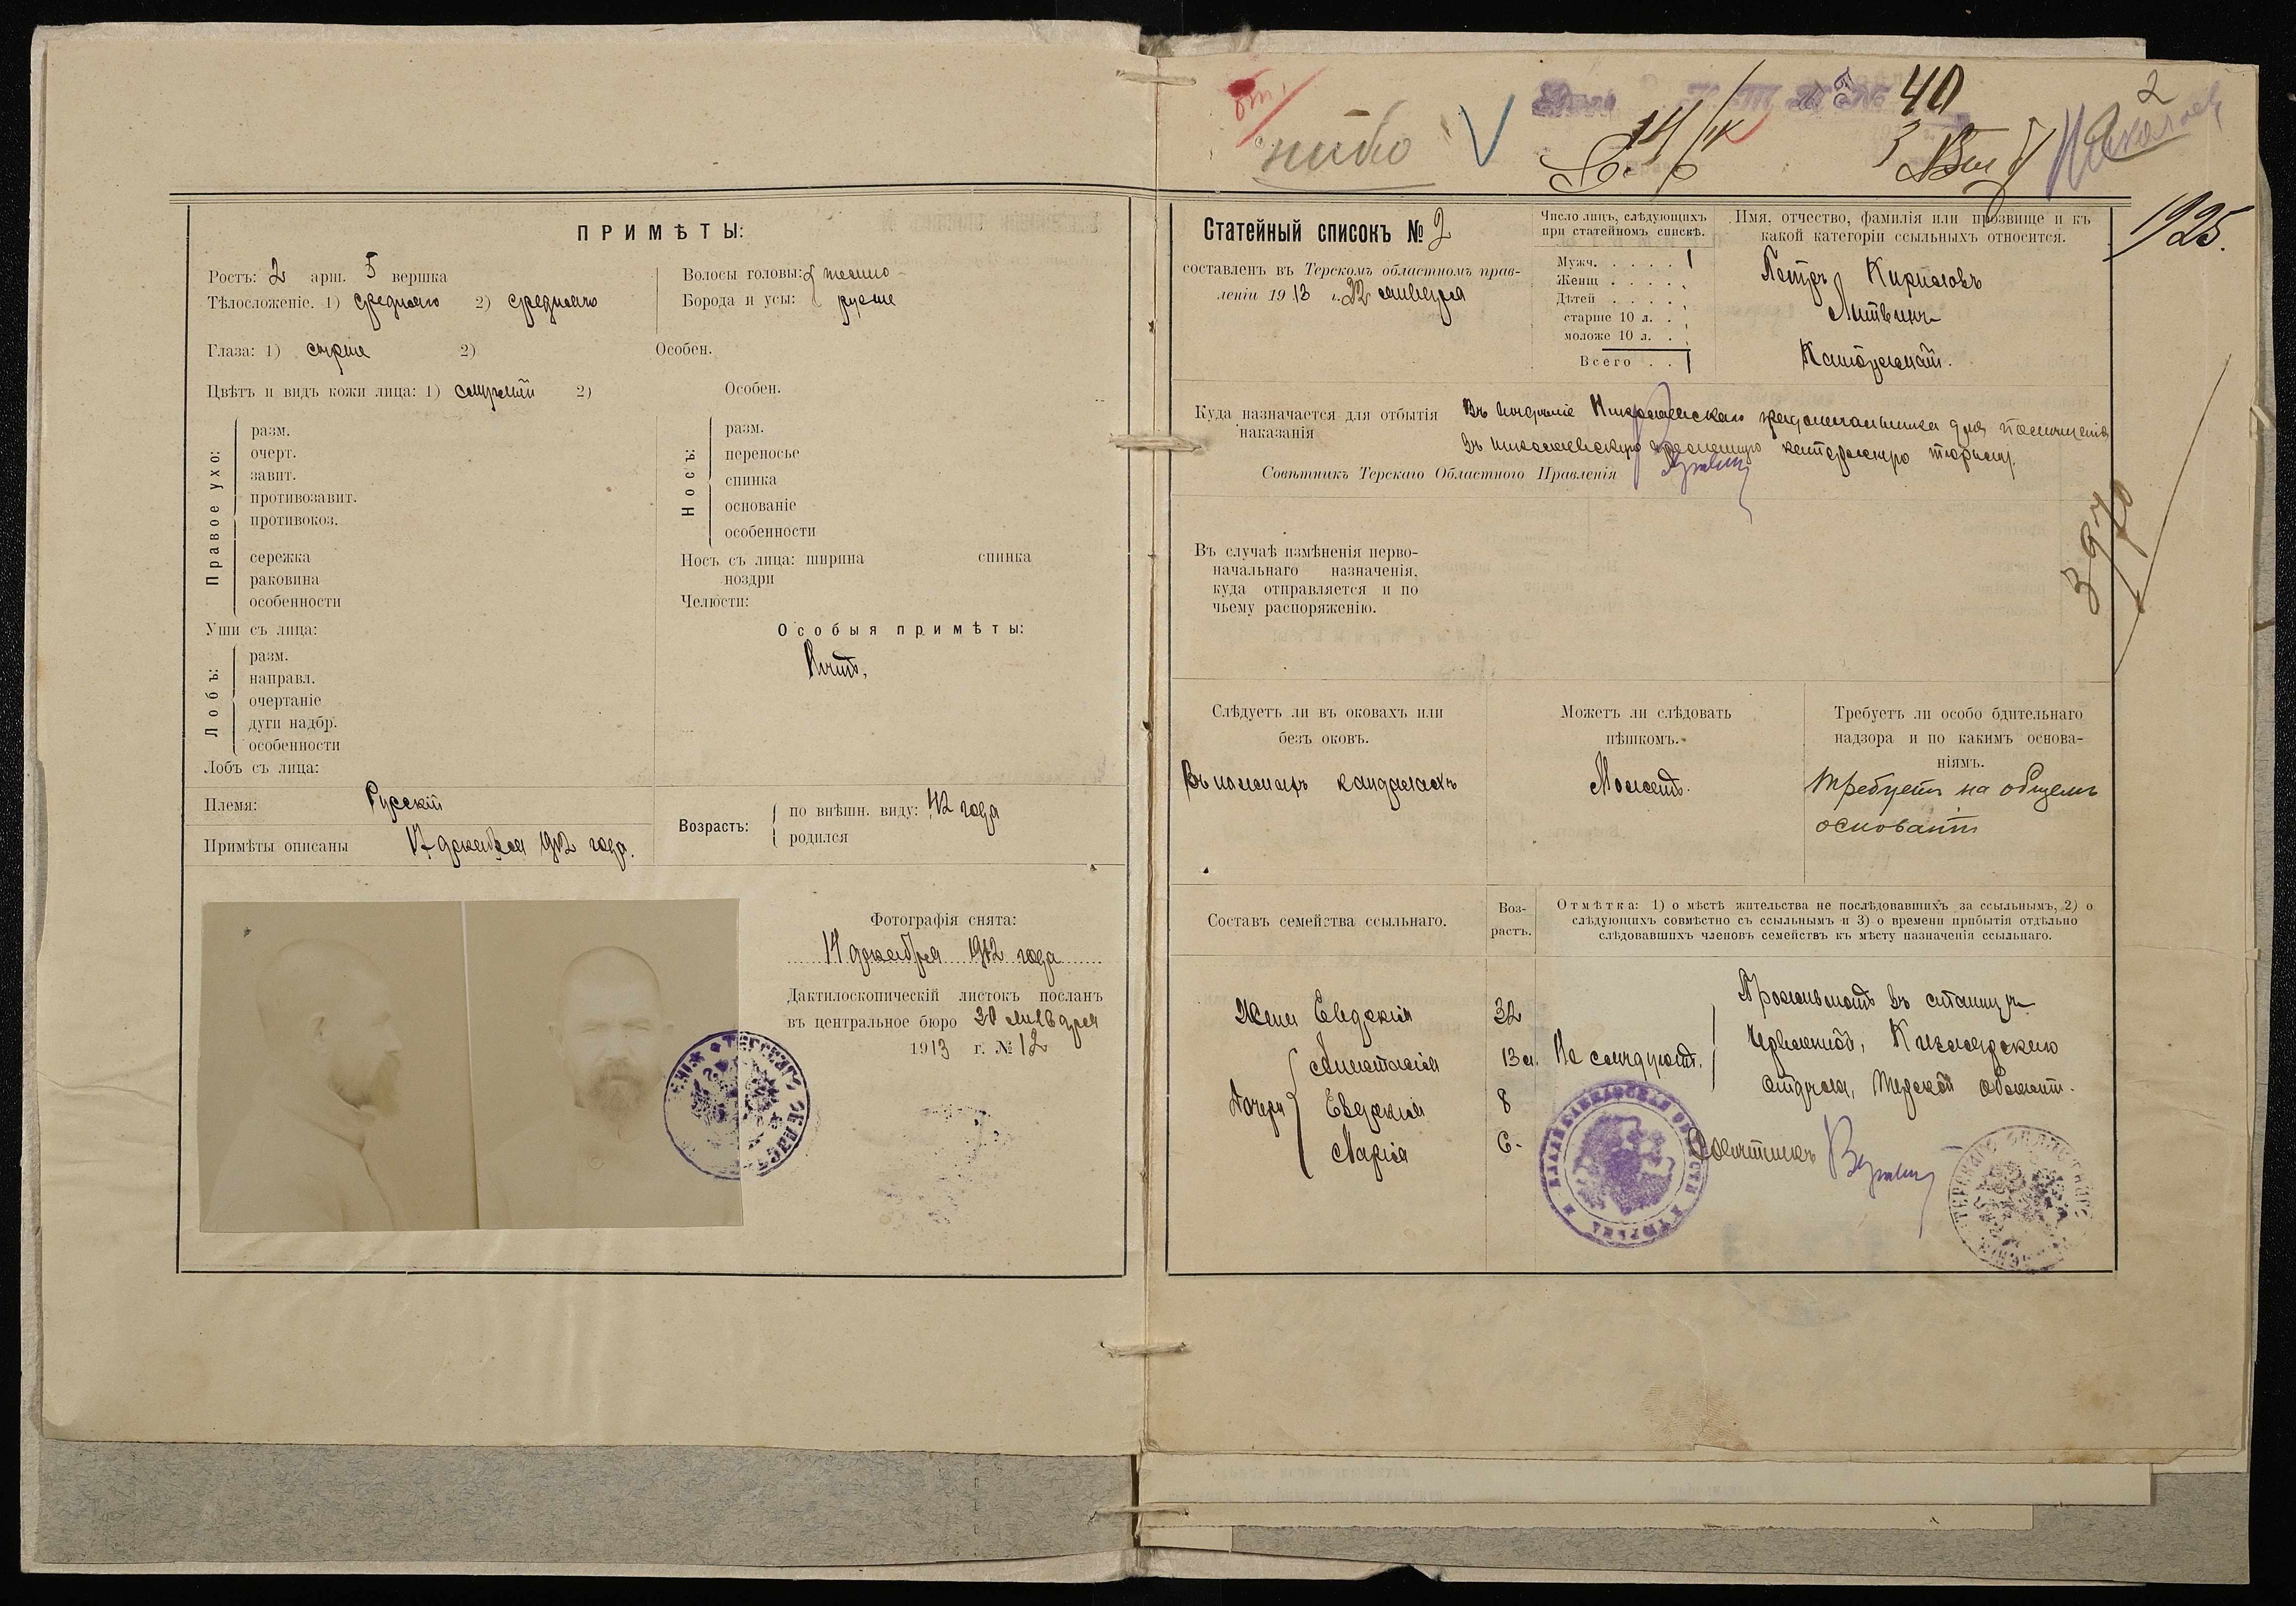 ПРИМѢТЫ:
Ростъ: 2 арш. 5 вершка
Тѣлосложеніе. 1) средняго 2) средняго
Волосы головы: { темно-
Борода и усы: { русые
Глаза: 1) сѣрые 2)
Особен.
Цвѣтъ и видъ кожи лица: 1) смуглый 2)
Особен.
Правое ухо:
разм.
очерт.
завит.
противозавит.
противокоз.
сережка
раковина
особенности
Носъ:
разм.
переносье
спинка
основаніе
особенности
Носъ съ лица: ширина спинка
ноздри
Челюсти:
Уши съ лица:
Особыя примѣты:
Нѣтъ.
Лобъ:
разм.
направл.
очертаніе
дуги надбр.
особенности
Лобъ съ лица:
Племя: Русскій
Примѣты описаны 17 декабря 1912 года.
Возрастъ:
по внѣшн. виду: 42 года
родился
Фотографія снята:
17 декабря 1912 года
Дактилоскопическій листокъ посланъ
въ центральное бюро 30 января
1913 г. № 12
40
2
1925.
3970
Статейный списокъ № 2
составленъ въ Терскомъ областномъ прав-
леніи 1913 г. 22 января
Число лицъ, слѣдующихъ
при статейномъ спискѣ.
Мужч. . . . . 1
Женщ . . . . .
Дѣтей . . . .
старше 10 л. .
моложе 10 л. .
Всего . . 1
Имя, отчество, фамилія или прозвище и къ
какой категоріи ссыльныхъ относится.
Петръ Кириловъ
Литвинъ
Каторжный.
Куда назначается для отбытія
наказанія
Въ вѣдѣніе Николаевскаго градоначальника для помѣщенія
въ Николаевскую временную каторжную тюрьму.
Совѣтникъ Терскаго Областного Правленія
Въ случаѣ измѣненія перво-
начальнаго назначенія,
куда отправляется и по
чьему распоряженію.
Слѣдуетъ ли въ оковахъ или
безъ оковъ.
Въ ножныхъ кандалахъ
Можетъ ли слѣдовать
пѣшкомъ.
Можетъ.
Требуетъ ли особо бдительнаго
надзора и по какимъ основа-
ніямъ.
Требуетъ на общемъ
основаніи
Составъ семейства ссыльнаго.
Воз-
растъ.
Отмѣтка: 1) о мѣстѣ жительства не послѣдовавшихъ за ссыльнымъ, 2) о
слѣдующихъ совмѣстно съ ссыльнымъ и 3) о времени прибытія отдѣльно
слѣдовавшихъ членовъ семействъ къ мѣсту назначенія ссыльнаго.
Жена Евдокія 32
Дочери
Анастасія 13 л.
Евдокія 8
Марія 6
Не слѣдуютъ.
Проживаютъ въ станицѣ
Червленной, Кизлярскаго
отдѣла, Терской области.
Совѣтникъ